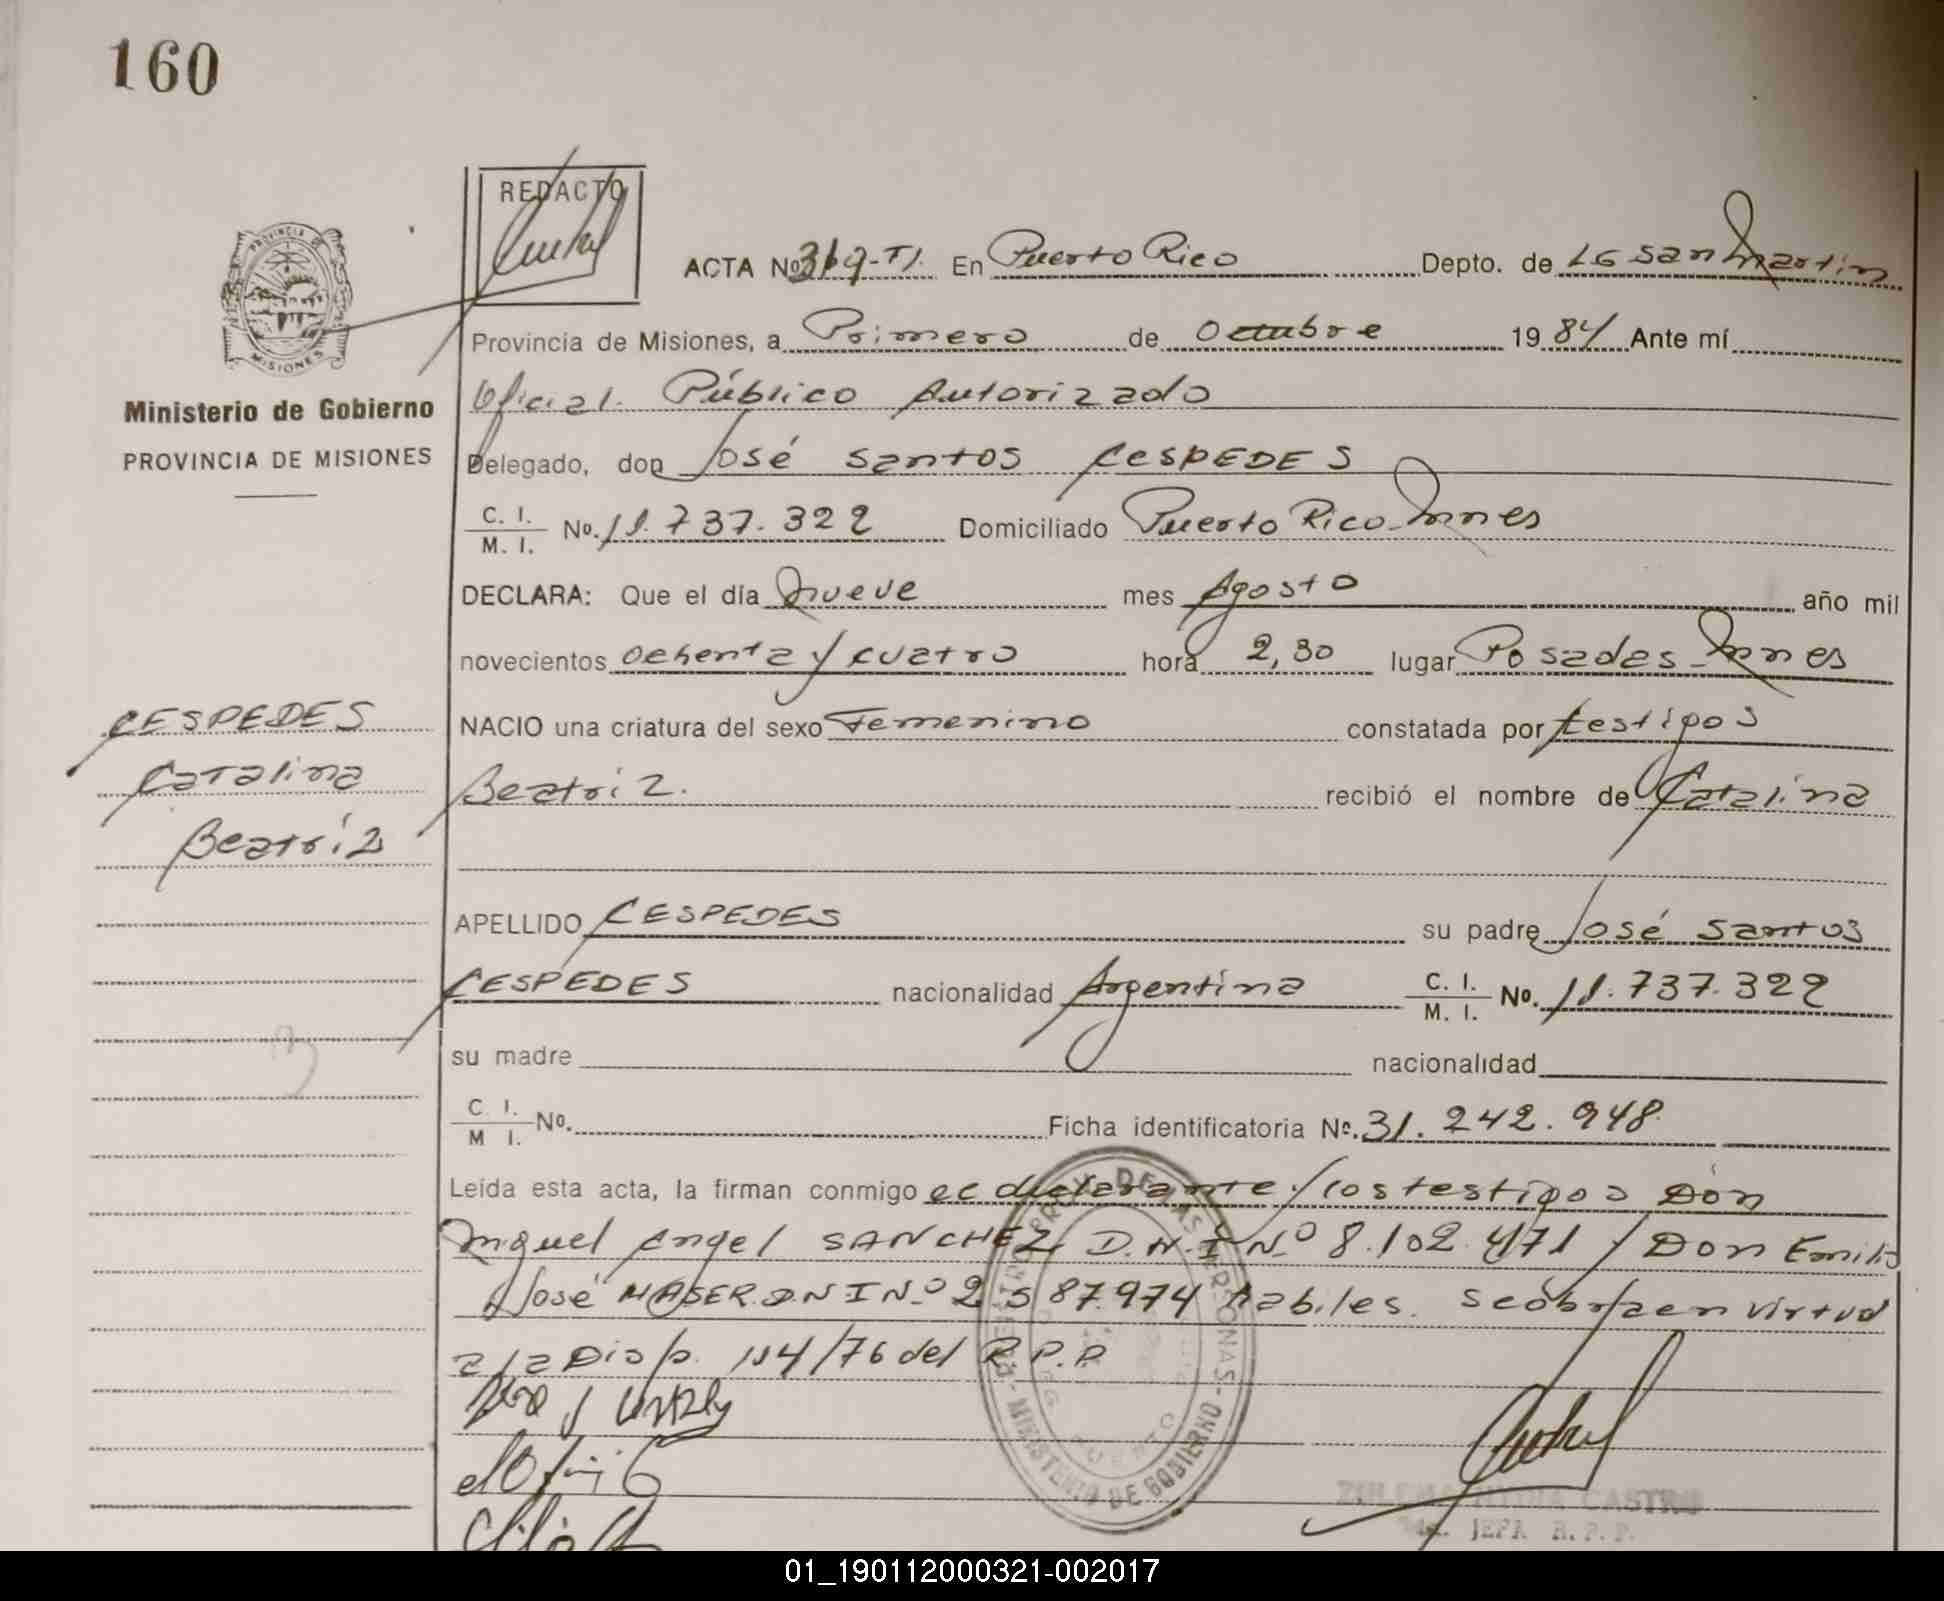 160
REDACTO
ACTA Nº 319-TI. En Puerto Rico Depto. de LG San Martin
PROVINCIA DE MISIONES
Provincia de Misiones, a Primero de Octubre 1984 Ante mí
Ministerio de Gobierno
PROVINCIA DE MISIONES
Oficial Público Autorizado
Delegado, don José Santos CESPEDES
C. I.
M. I. No. 11.737.322 Domiciliado Puerto Rico-Mnes
DECLARA: Que el día Nueve mes Agosto año mil
novecientos Ochenta y cuatro hora 2,30 lugar Posadas-Mnes
CESPEDES
Catalina
Beatriz
NACIO una criatura del sexo Femenino constatada por testigos
Beatriz. recibió el nombre de Catalina
APELLIDO CESPEDES su padre José Santos
CESPEDES nacionalidad Argentina C. I.
M. I. No. 11.737.322
su madre nacionalidad
C. I.
M I. No. Ficha identificatoria Nº. 31.242.948.
Leída esta acta, la firman conmigo el declarante y los testigos Don
Miguel Angel SANCHEZ D.N.I Nº 8.102.471 y Don Emilio
José D.N I Nº 2 587.974 habiles. Se óbra en virtud
a la Disp. 114/76 del R.P.P
REGISTRO PROV. DE LAS PERSONAS - MINISTERIO DE GOBIERNO -
CASTRO
JEFA R. P. P.
01_190112000321-002017